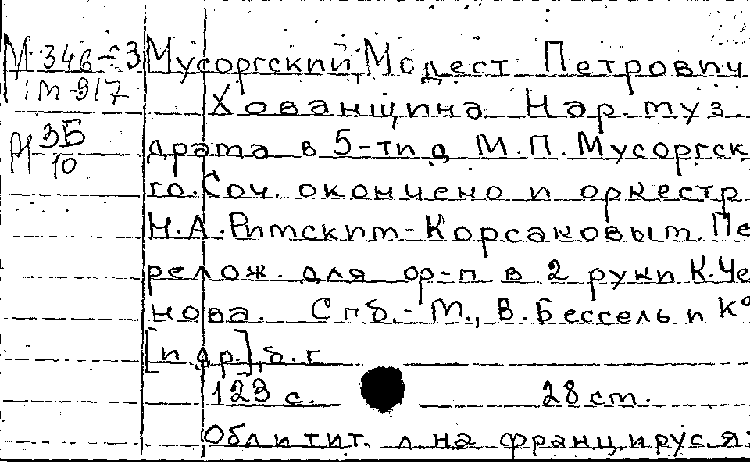 М 346-3 Мусоргский, Модест Петрович
1м-917 Хованщина. Нар. муз.
М 3Б/10 драма в 5-ти д М.П. Мусоргск
го. Соч. окончено и оркестр
Н.А. Римским-Корсаковым. Пе
релож. для ф-п в 2 руки К. Че
нова. Спб.-М., В. Бессель и Ко
[и др.], б. г
123 с. 28 см.
Обл и тит. л на франц. и рус. я